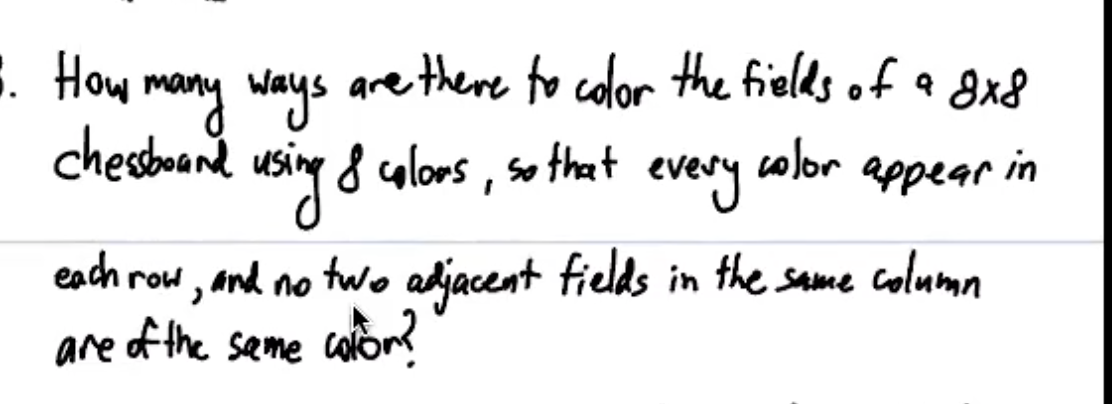 3. How many ways are there to color the fields of a 8x8
chessboard using 8 colors, so that every color appear in
each row, and no two adjacent fields in the same column
are of the same color?